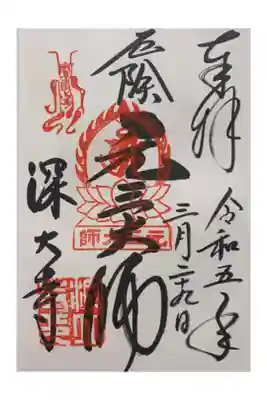 奉拝
令和五年
三月二九日
厄除
元三大師
元三大師
深大寺